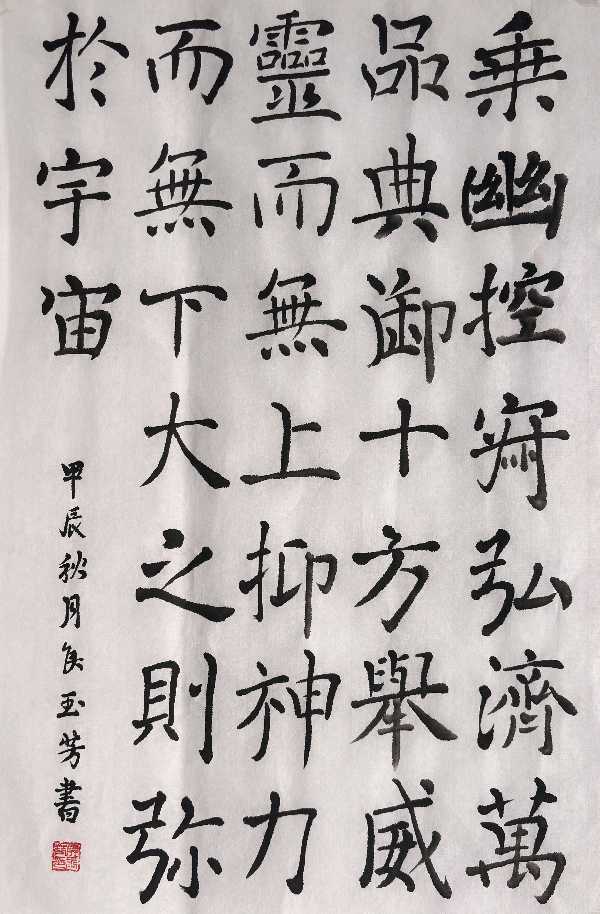 乗幽控寂弘濟萬
品典御十方舉威
靈而無上抑神力
而無下大之則弥
於宇宙
甲辰秋月侯玉芳書